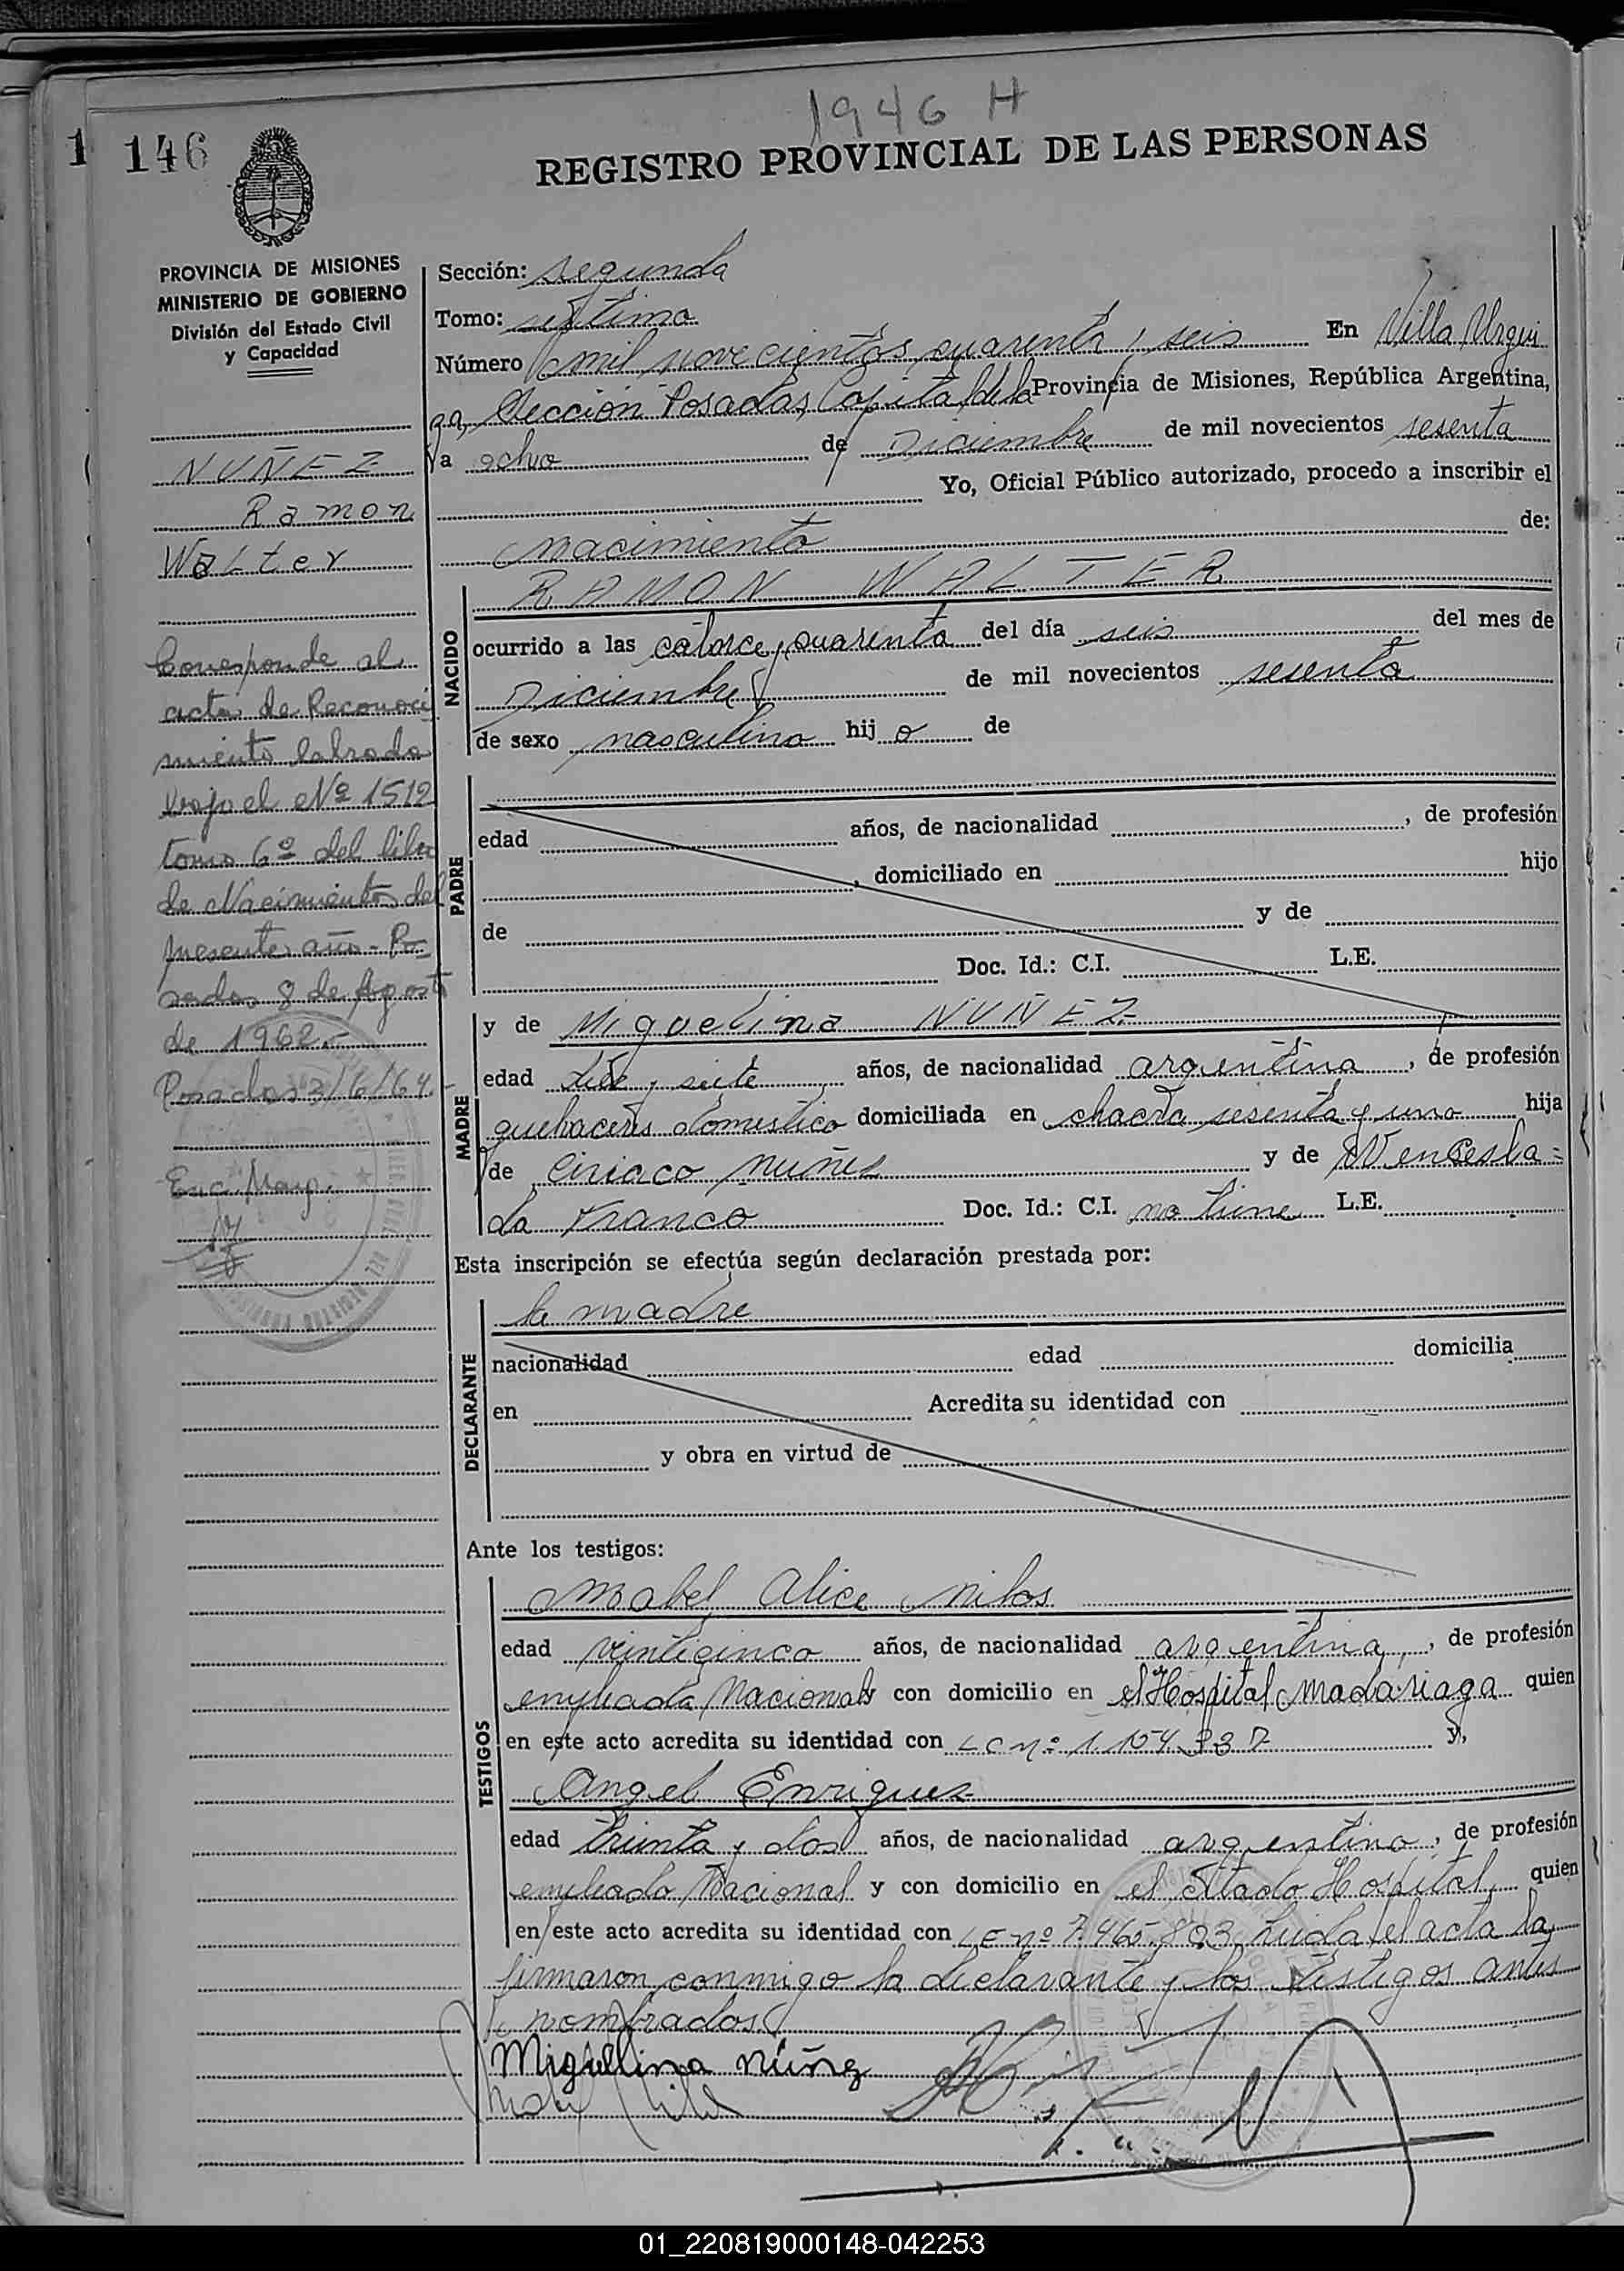 1946 H
1 146
REGISTRO PROVINCIAL DE LAS PERSONAS
PROVINCIA DE MISIONES
MINISTERIO DE GOBIERNO
División del Estado Civil
y Capacidad
NUÑEZ
Ramon
Walter
Corresponde al
acta de Reconoci
miento labrada
bajo el Nº 1512
tomo 6º del libro
de Nacimientos del
presente año - Po-
sadas 8 de Agosto
de 1962.-
Posadas 3/6/64.-
Sección: segunda
Tomo: septimo
Número mil novecientos cuarenta y seis En Villa Urqui
za, Sección Posadas, Capital de la Provincia de Misiones, República Argentina,
a ocho de Diciembre de mil novecientos sesenta
Yo, Oficial Público autorizado, procedo a inscribir el
nacimiento de:
NACIDO
RAMON WALTER
ocurrido a las catorce y cuarenta del día seis del mes de
Diciembre de mil novecientos sesenta
de sexo masculino hij o de
PADRE
edad años, de nacionalidad , de profesión
, domiciliado en hijo
de y de
Doc. Id.: C.I. L.E.
MADRE
y de Miguelina NUÑEZ
edad diez y siete años, de nacionalidad argentina , de profesión
quehaceres domestico domiciliada en chacra sesenta y uno hija
de Ciriaco nuñez y de Wencesla=
da Franco Doc. Id.: C.I. no tiene L.E.
Esta inscripción se efectúa según declaración prestada por:
DECLARANTE
la madre
nacionalidad edad domicilia
en Acredita su identidad con
y obra en virtud de
Ante los testigos:
TESTIGOS
Mabel Alice Milos
edad veinticinco años, de nacionalidad argentina , de profesión
empleada Nacional y con domicilio en el Hospital Madariaga quien
en este acto acredita su identidad con LC nº y,
Angel Enriquez
edad treinta y dos años, de nacionalidad argentino , de profesión
empleado Nacional y con domicilio en el citado Hospital, quien
en este acto acredita su identidad con LE nº 7.465.803 Leida el acta la
firmaron conmigo la declarante y los testigos antes
nombrados
Miguelina núñez
01_220819000148-042253